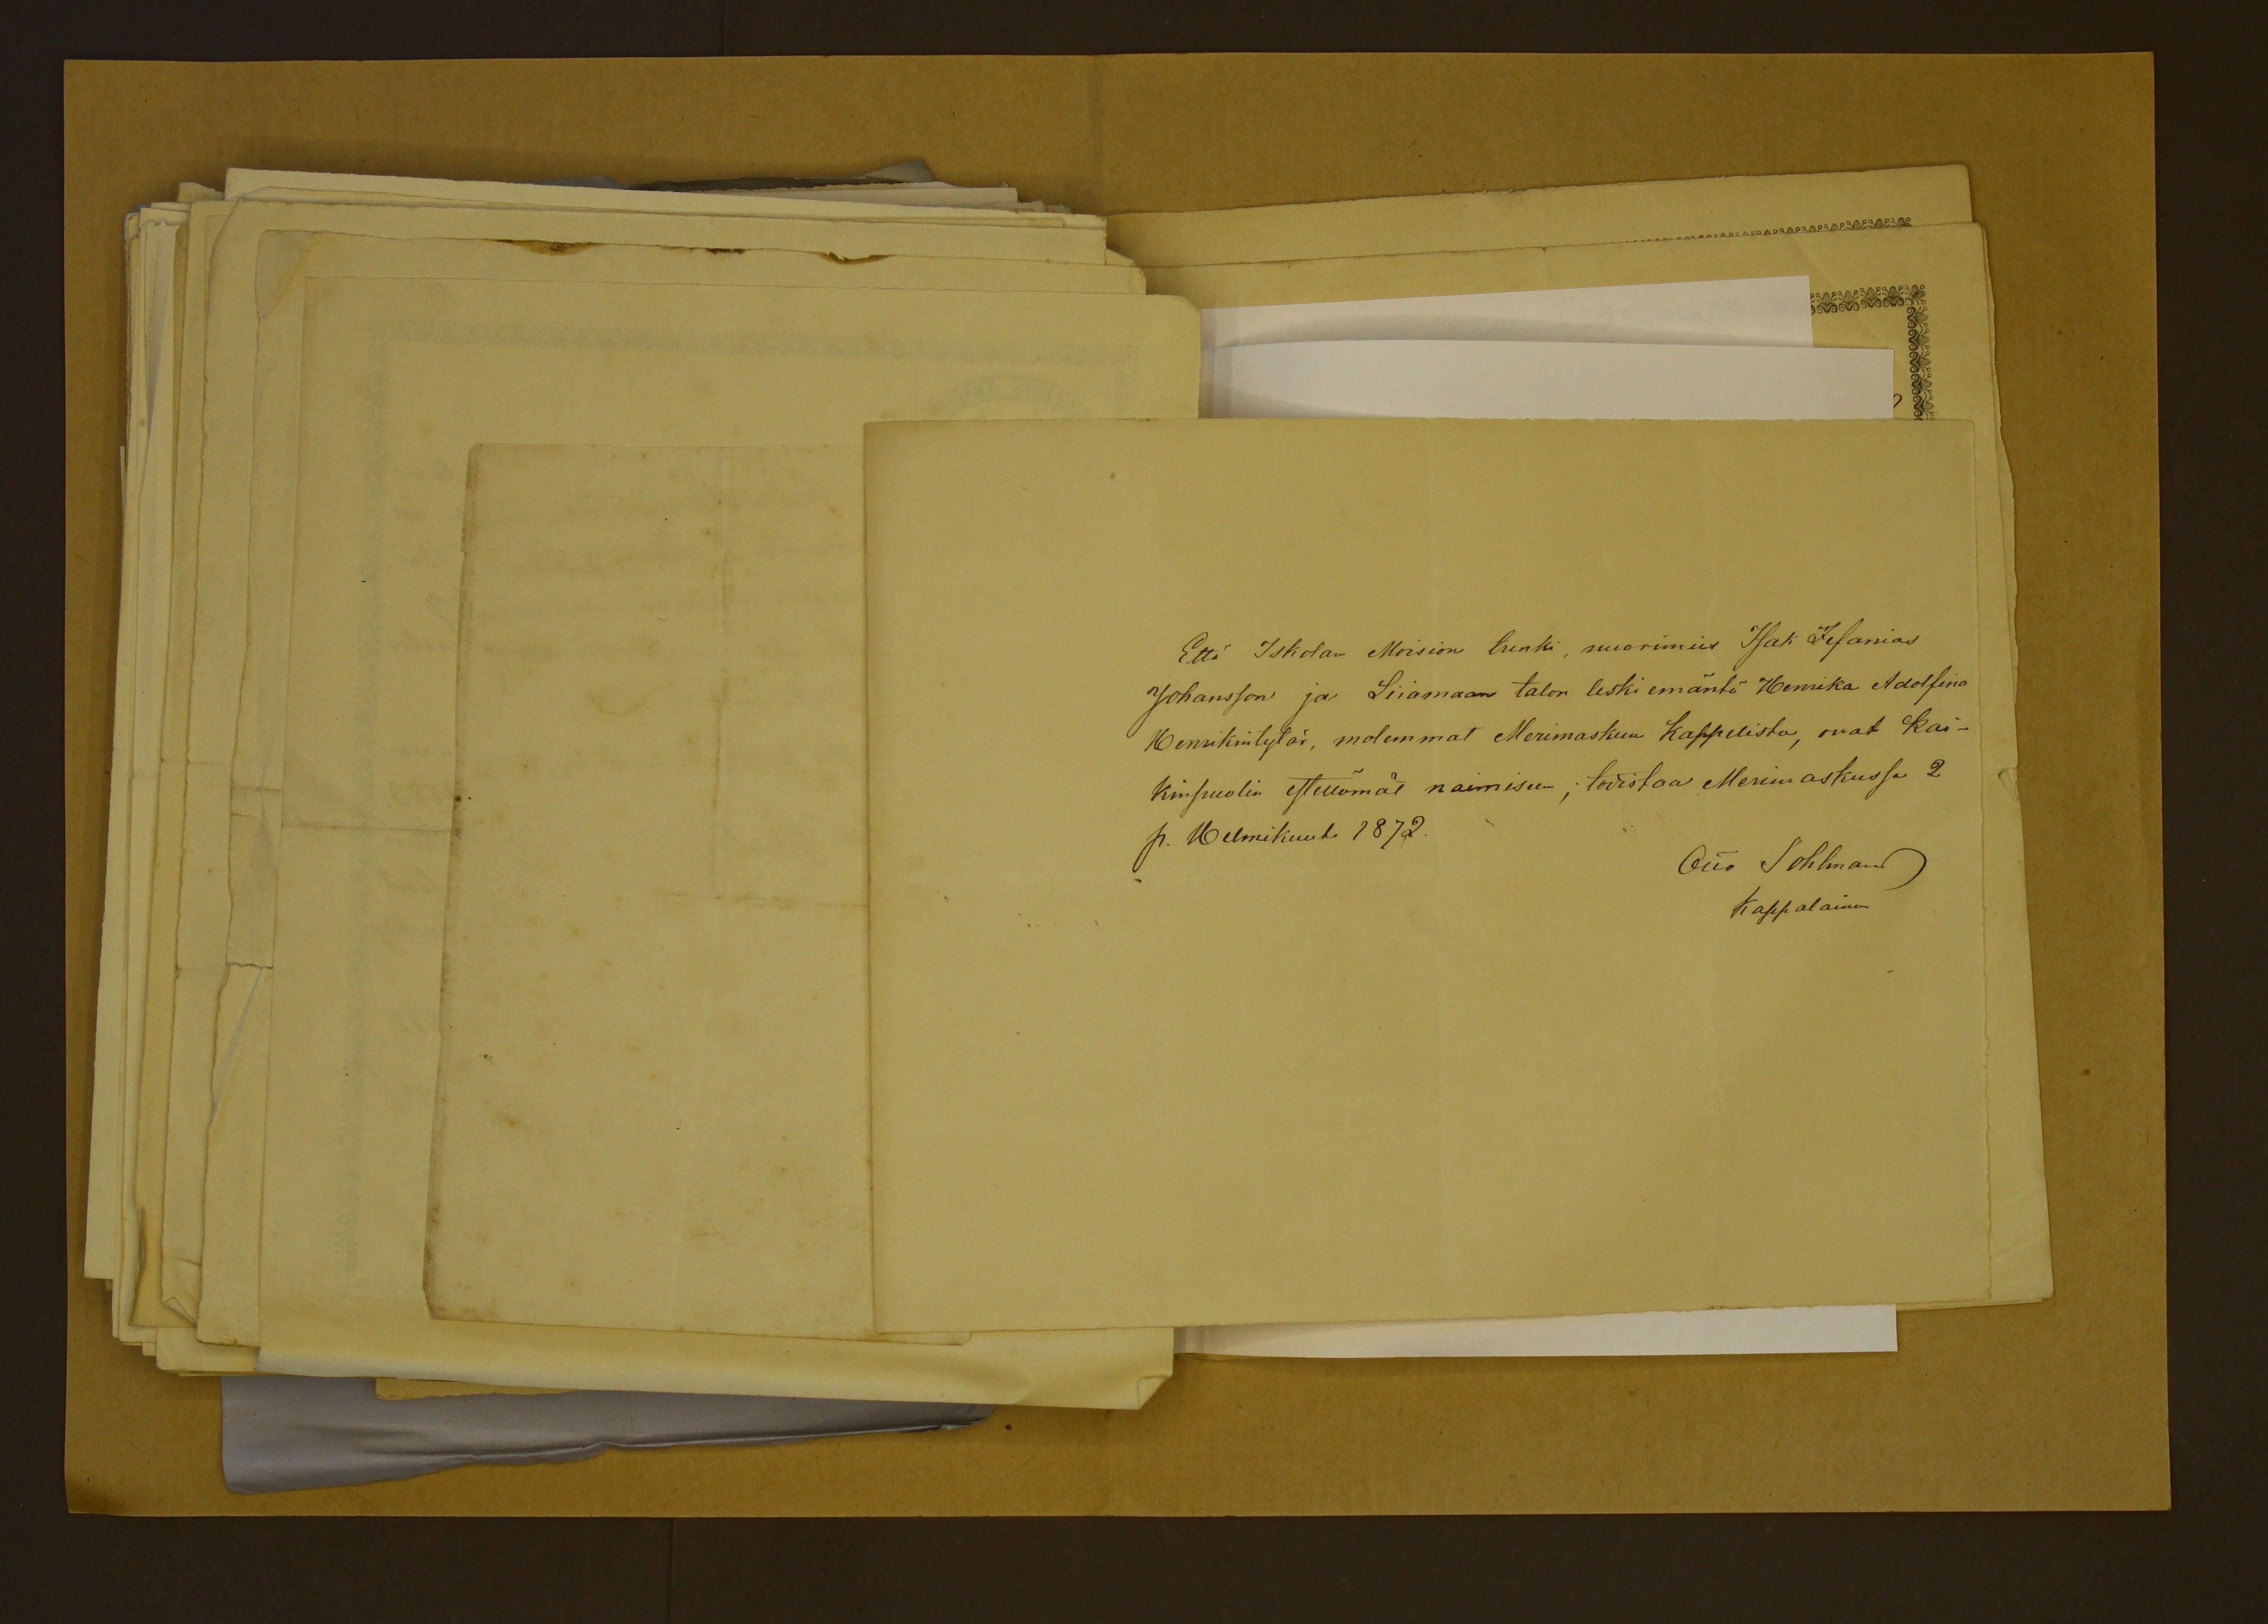 Että Iskolan Moision renki, nuorimies Isak Zefanias
Johansson ja Liiamaan talon leski emäntä Henrika Adolfina
Henrikintytär, molemmat Merimaskun Kappelista, ovat kai-
kinpuolin esteettömät naimiseen; todistaa Merimaskussa 2
p. Helmikuuta 1872.
Otto Sohlman
Kappalainen